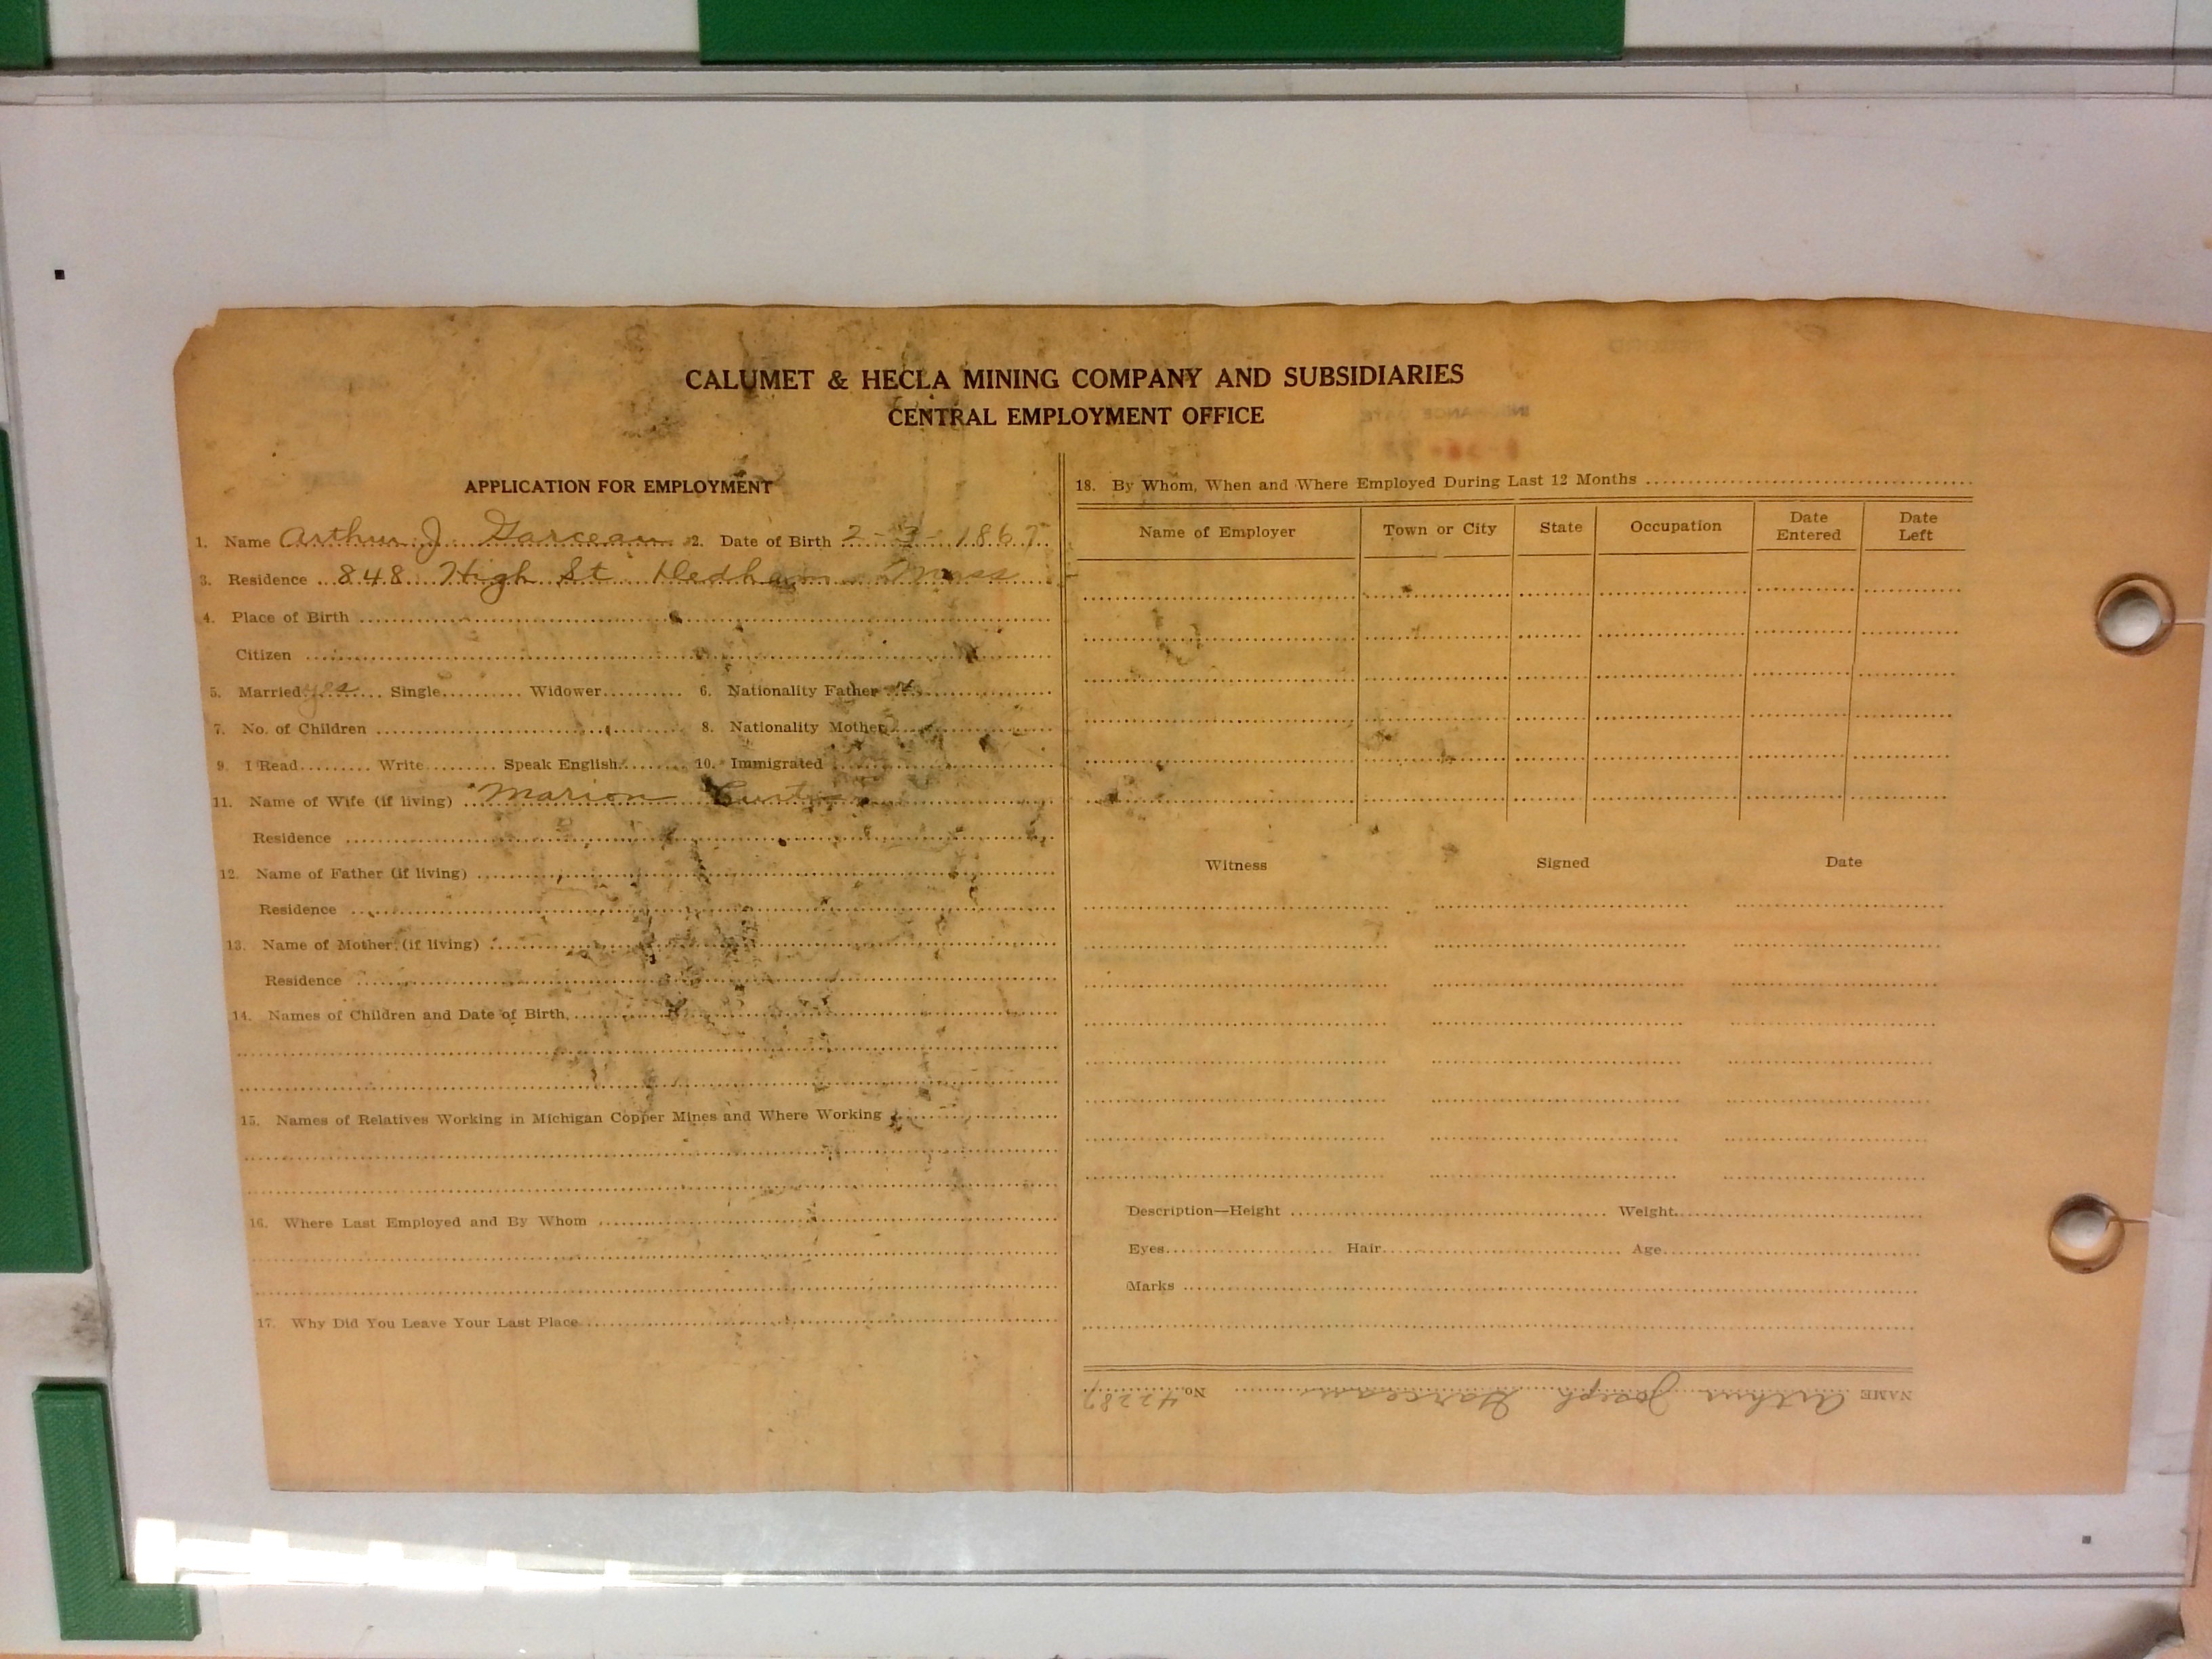 CALUMET & HECLA MINING COMPANY AND SUBSIDIARIES
CENTRAL EMPLOYMENT OFFICE
APPLICATION FOR EMPLOYMENT
1. Name Arthur J. Garceau 2. Date of Birth 2-3-1867
3. Residence 848 High St Dedham Mass
4. Place of Birth
Citizen
5. Married yes Single Widower 6. Nationality Father
7. No. of Children 8. Nationality Mother
9. I Read Write Speak English 10. Immigrated
11. Name of Wife (if living) Marion Curtis
Residence
12. Name of Father (if living)
Residence
13. Name of Mother (if living)
Residence
14. Names of Children and Date of Birth,
15. Names of Relatives Working in Michigan Copper Mines and Where Working
16. Where Last Employed and By Whom
17. Why Did You Leave Your Last Place
18. By Whom, When and Where Employed During Last 12 Months
Name of Employer Town or City State Occupation Date Entered Date Left
Witness Signed Date
Description—Height Weight
Eyes Hair Age
Marks
NAME Arthur Joseph Garceau No. 42287